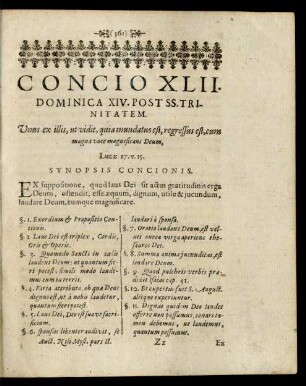 (361)
CONCIO XLII.
DOMINICA XIV. POST SS. TRI-
NITATEM.
Unus ex illis, ut vidit, quia mundatus est, regressus est, cum
magna voce magnificans Deum,
Lucæ 17. v. 15.
SYNOPSIS CONCIONIS.
EX suppositione, quod laus Dei sit actus gratitudinis erga
Deum, ostendit, esse æquum, dignum, utile & jucundum,
laudare Deum, eumque magnificare.
§. 1. Exordium & Propositio Con-
cionum.
§. 2. Laus Dei est triplex, Cordis,
Oris & Operis.
§. 3. Quomodo Sancti in cælis
laudent Deum: ut quantum fie-
ri potest, simili modo laude-
mus cum in terris.
§. 4. Varia attributa, ob quæ Deus
dignus est, ut à nobis laudetur,
quantum fieri potest.
§. 5. Laus Dei, Deo est suave sacri-
ficium.
§. 6. sponsus libenter audivit, se
laudari à sponsa.
§. 7. Oratio laudans Deum, est vel-
uti aurea virga aperiens the-
sauros Dei.
§. 8. Summa animæ jucunditas, est
laudare Deum.
§. 9. Quod pulcheris verbis præ-
dixit Isaias cap. 51.
§. 10. Et expertus fuit S. August.
alii que experiuntur.
§. 11. Dignas quidem Deo laudes
offerre non possumus, conari ta-
men debemus, ut laudemus,
quantum possumus.
Auct. Nzz Myst. pars II.
Zz
Ex